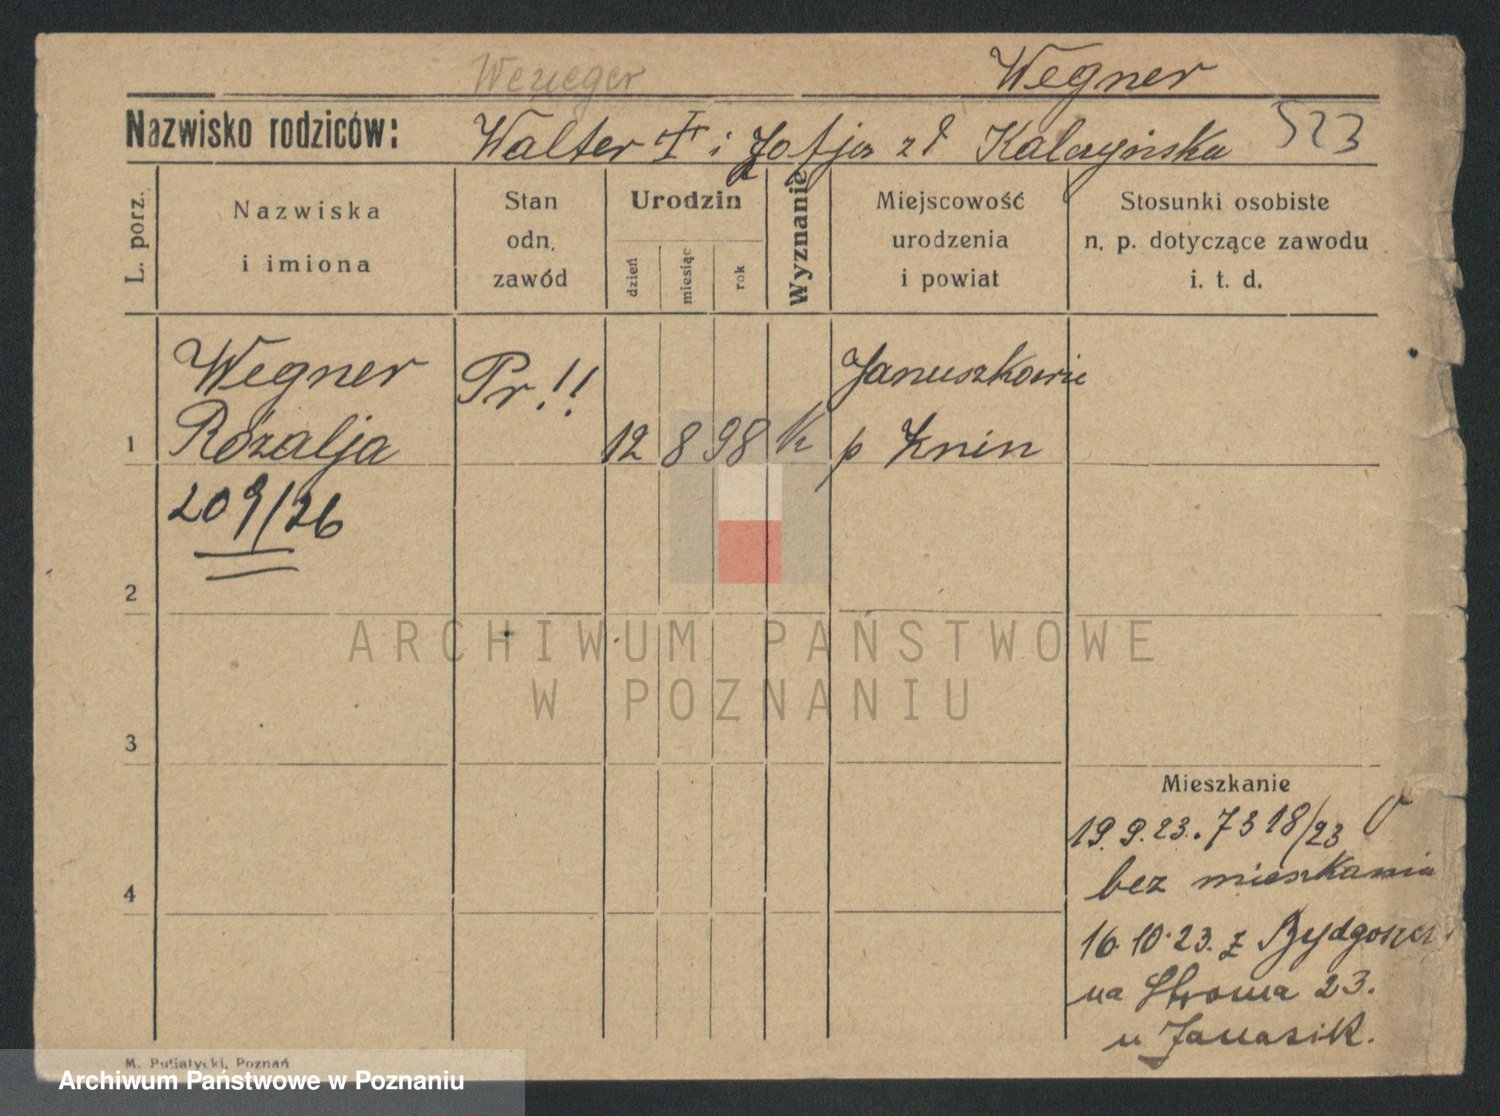 Wegner
Nazwisko rodziców:
Walter i Zofja zd Kalczyńska 523
L. porz.
Nazwiska
i imiona
Stan
odn.
zawód
Urodzin
dzień
miesiąc
rok
Wyznanie
Miejscowość
urodzenia
i powiat
Stosunki osobiste
n. p. dotyczące zawodu
i. t. d.
Wegner Pr.!! Januszkowie
1 Rózalja 12 8 98 k p Żnin
209/26
2
ARCHIWUM PAŃSTWOWE
W POZNANIU
3
Mieszkanie
19.9.23. 7318/23
4 bez mieszkania
16.10.23. z Bydgoszcz
na Stroma 23.
u Janasik.
M. Putiatycki, Poznań
Archiwum Państwowe w Poznaniu